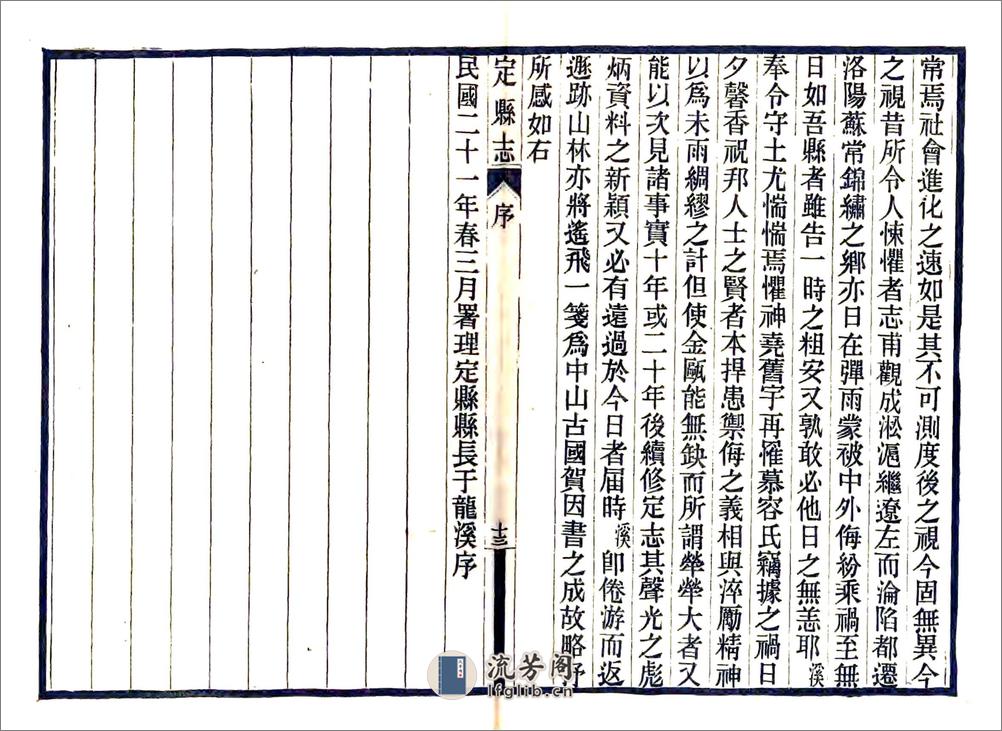 常焉社會進化之速如是其不可測度後之視今固無異今
之視昔所令人悚懼者志甫觀成淞滬繼遼左而淪陷都遷
洛陽蘇常錦繡之鄉亦日在彈雨蒙被中外侮紛乘禍至無
日如吾縣者雖告一時之粗安又孰敢必他日之無恙耶溪
奉令守土尤惴惴焉懼神堯舊宇再罹慕容氏竊據之禍日
夕馨香祝邦人士之賢者本捍患禦侮之義相與淬厲精神
以爲未雨綢繆之計但使金甌能無缺而所謂犖犖大者又
能以次見諸事實十年或二十年後續修定志其聲光之彪
炳資料之新穎又必有遠過於今日者届時溪卽倦游而返
遯跡山林亦將遙飛一箋爲中山古國賀因書之成故略抒
所感如右
定縣志 序 十三
民國二十一年春三月署理定縣縣長于龍溪序
流芳阁
lfglib.cn